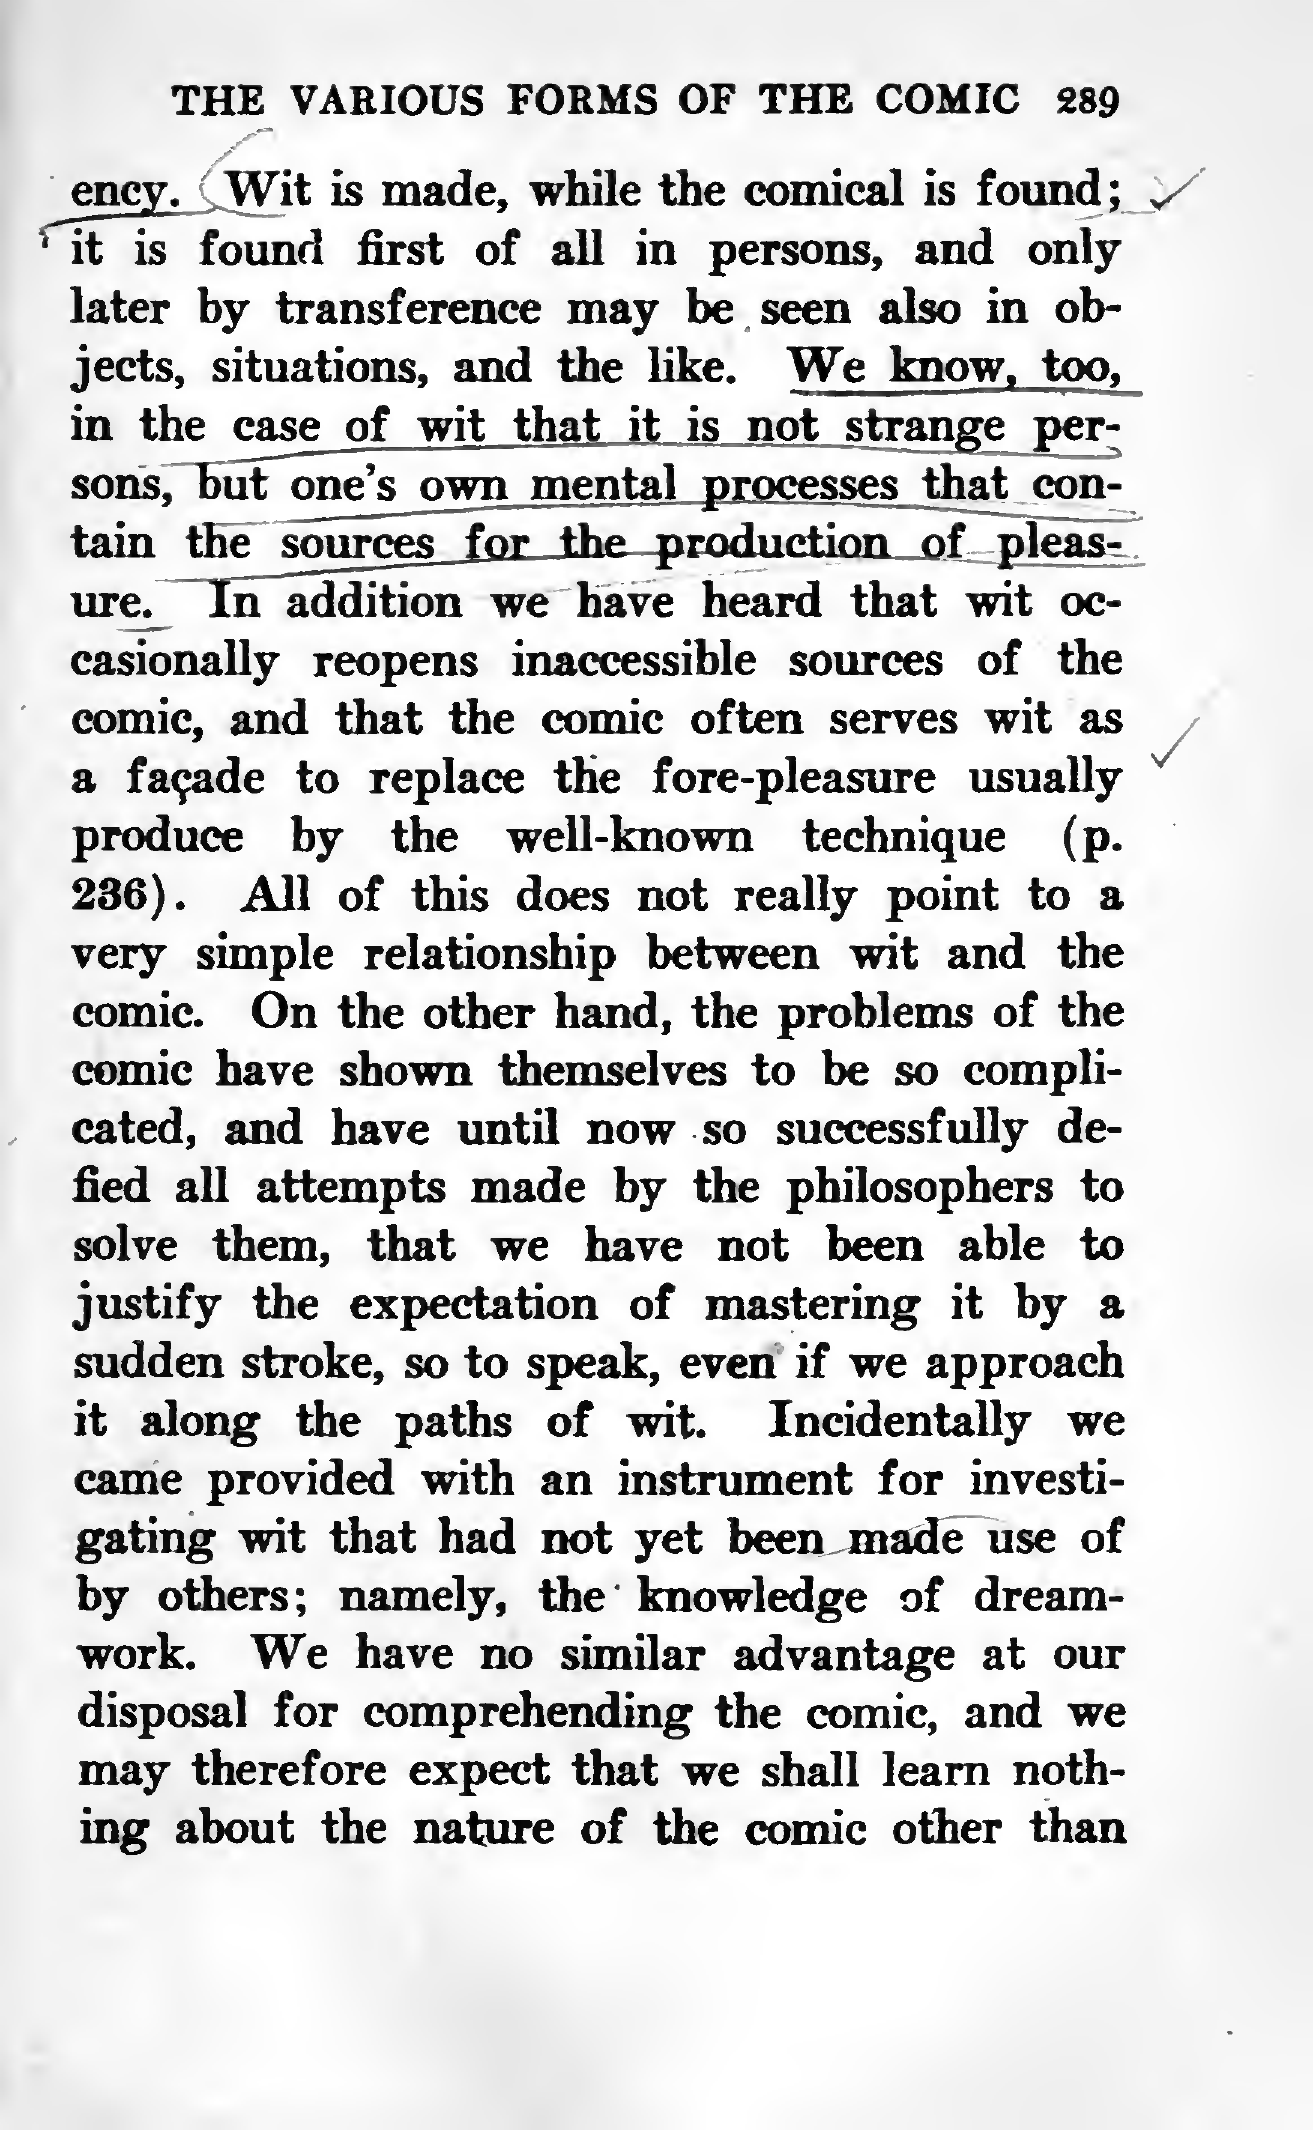 THE VARIOUS FORMS OF THE COMIC 289
ency. Wit is made, while the comical is found;
it is found first of all in persons, and only
later by transference may be seen also in ob-
jects, situations, and the like. We know, too,
in the case of wit that it is not strange per-
sons, but one's own mental processes that con-
tain the sources for the production of pleas-
ure. In addition we have heard that wit oc-
casionally reopens inaccessible sources of the
comic, and that the comic often serves wit as
a façade to replace the fore-pleasure usually
produce by the well-known technique (p.
236). All of this does not really point to a
very simple relationship between wit and the
comic. On the other hand, the problems of the
comic have shown themselves to be so compli-
cated, and have until now so successfully de-
fied all attempts made by the philosophers to
solve them, that we have not been able to
justify the expectation of mastering it by a
sudden stroke, so to speak, even if we approach
it along the paths of wit. Incidentally we
came provided with an instrument for investi-
gating wit that had not yet been made use of
by others; namely, the knowledge of dream-
work. We have no similar advantage at our
disposal for comprehending the comic, and we
may therefore expect that we shall learn noth-
ing about the nature of the comic other than